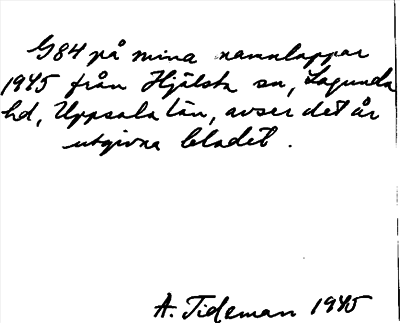 G84 på mina namnlappar
1945 från Hjälsta sn, Lagunda
hd, Uppsala län, avser det år
utgivna bladet.
A. Tideman 1945